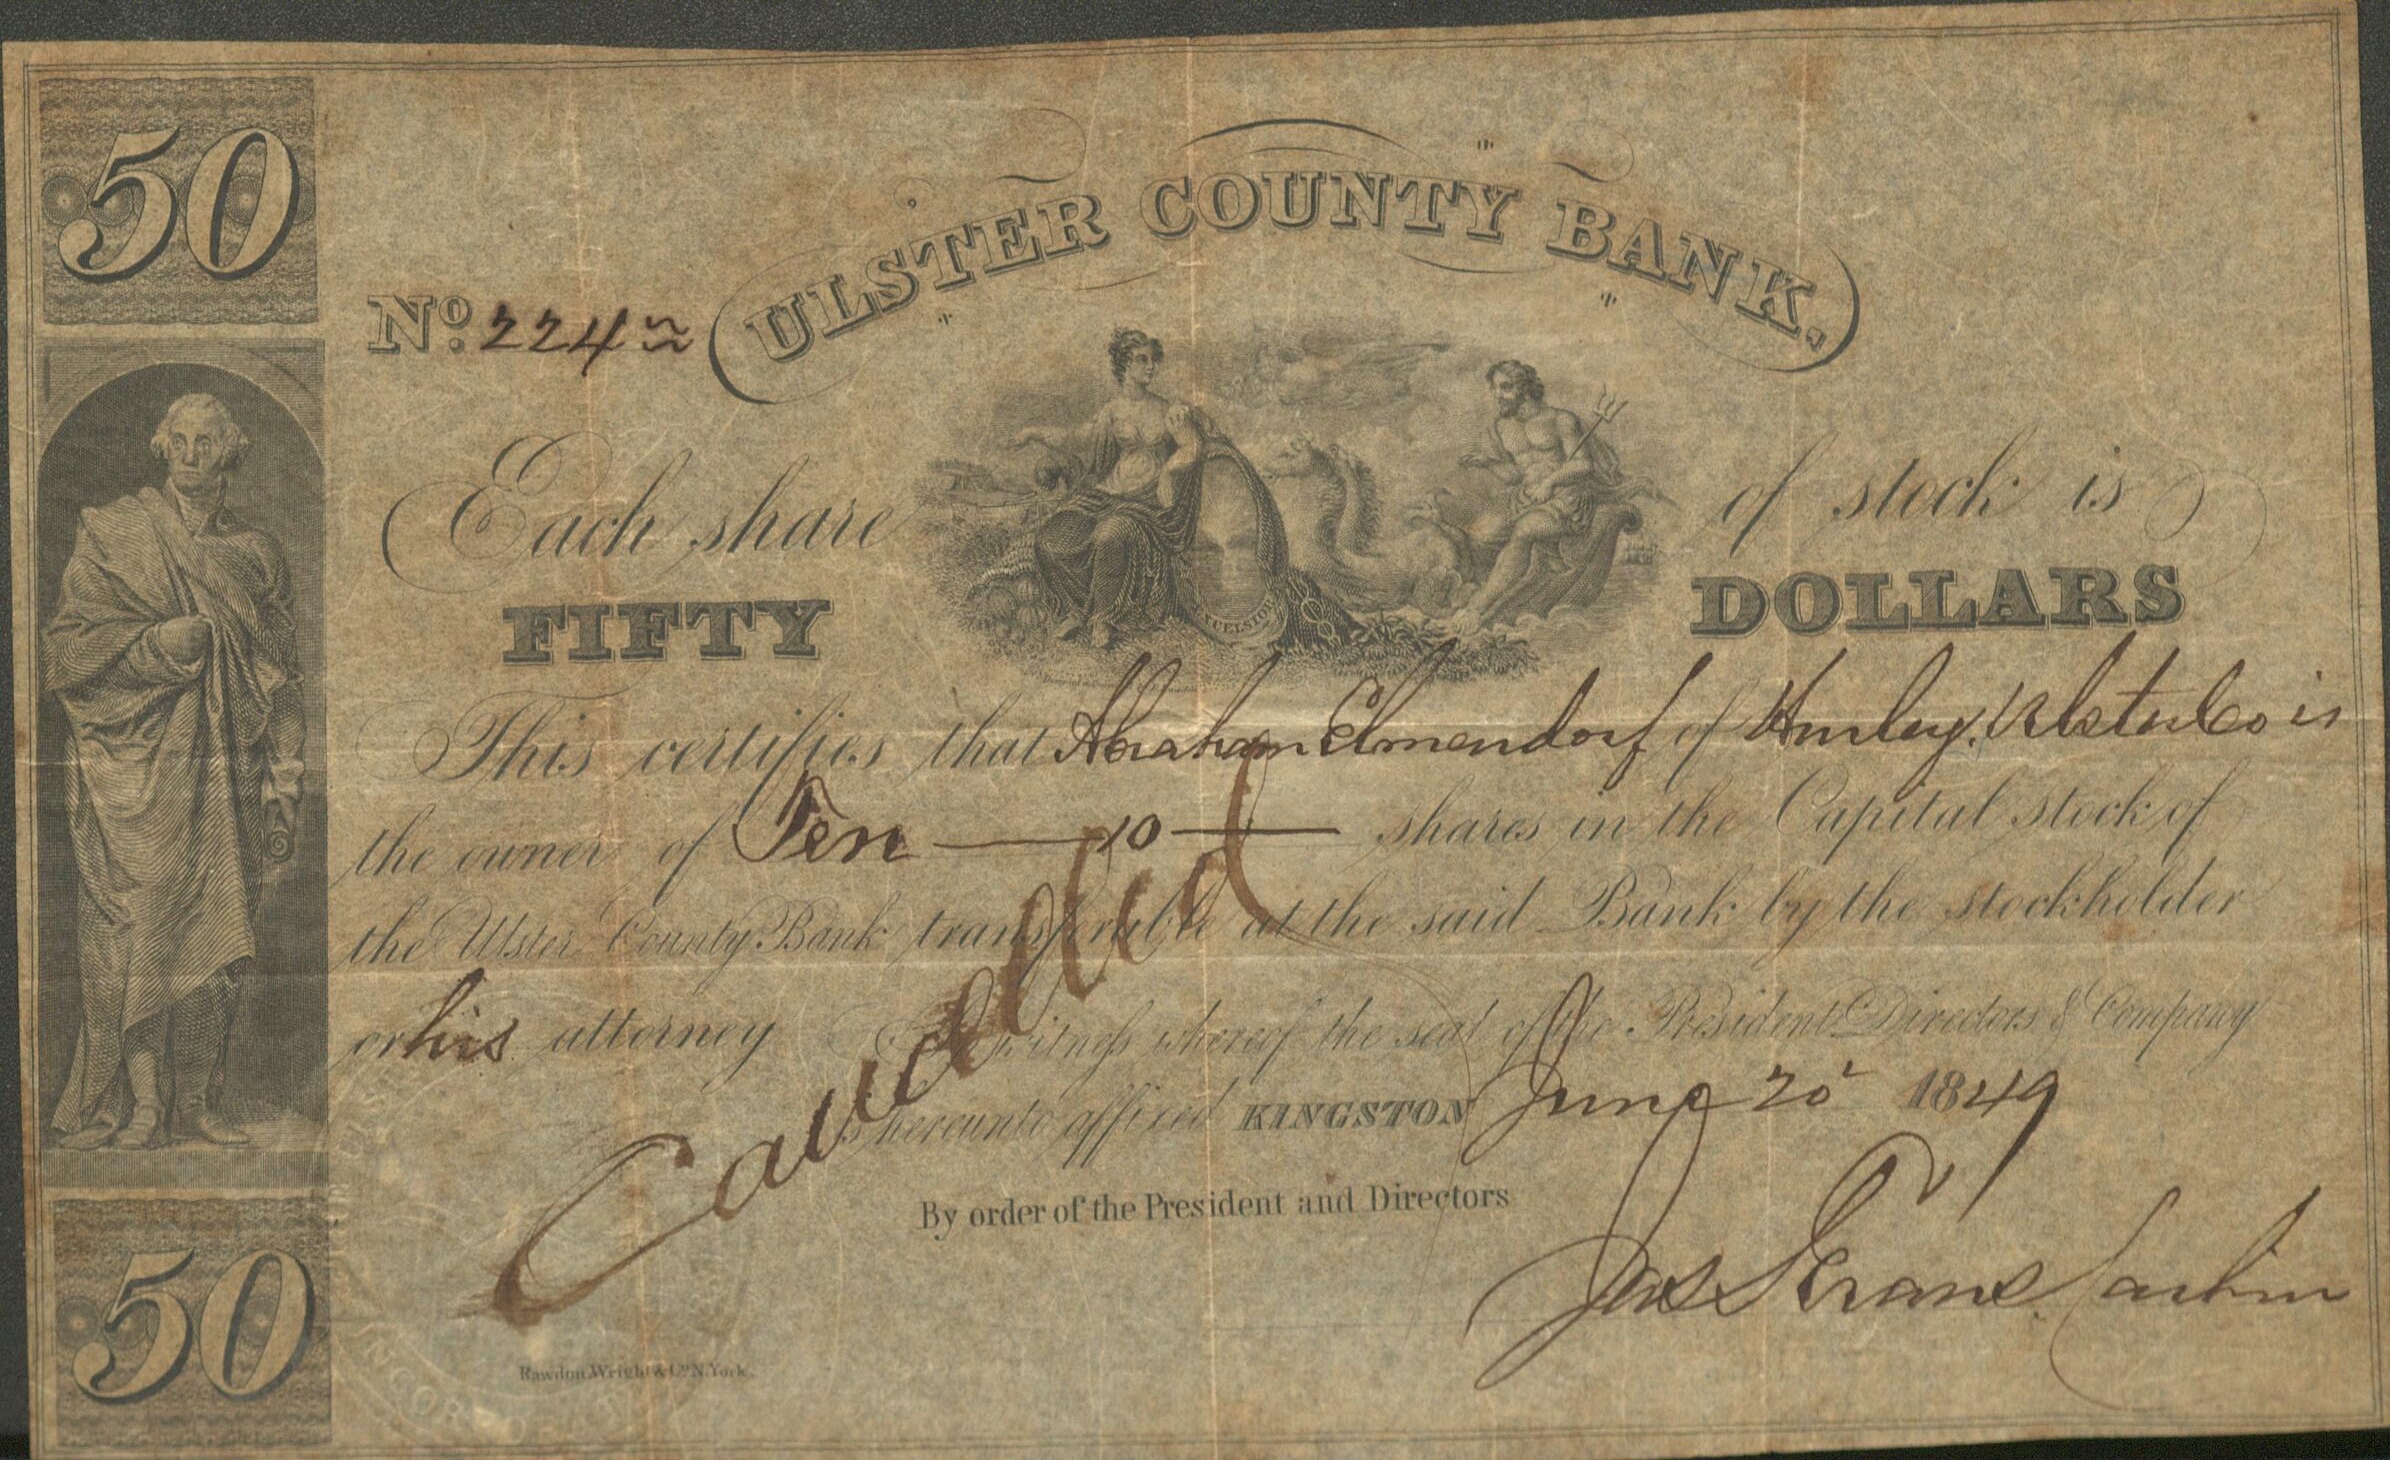 50
ULSTER COUNTY BANK.
No. 224
Each share of stock is
FIFTY DOLLARS
EXCELSIOR
This certifies that Abraham Elmendorf of Hurley, Ulster Co is
the owner of Ten — 10 — shares in the Capital Stock of
the Ulster County Bank transferable at the said Bank by the stockholder
or his attorney In witness whereof the seal of the President Directors & Company
is hereunto affixed KINGSTON June 20 1849
Cancelled
By order of the President and Directors
Jas S Evans Cashier
50
Rawdon, Wright & Co. N. York.
INCORPORATED